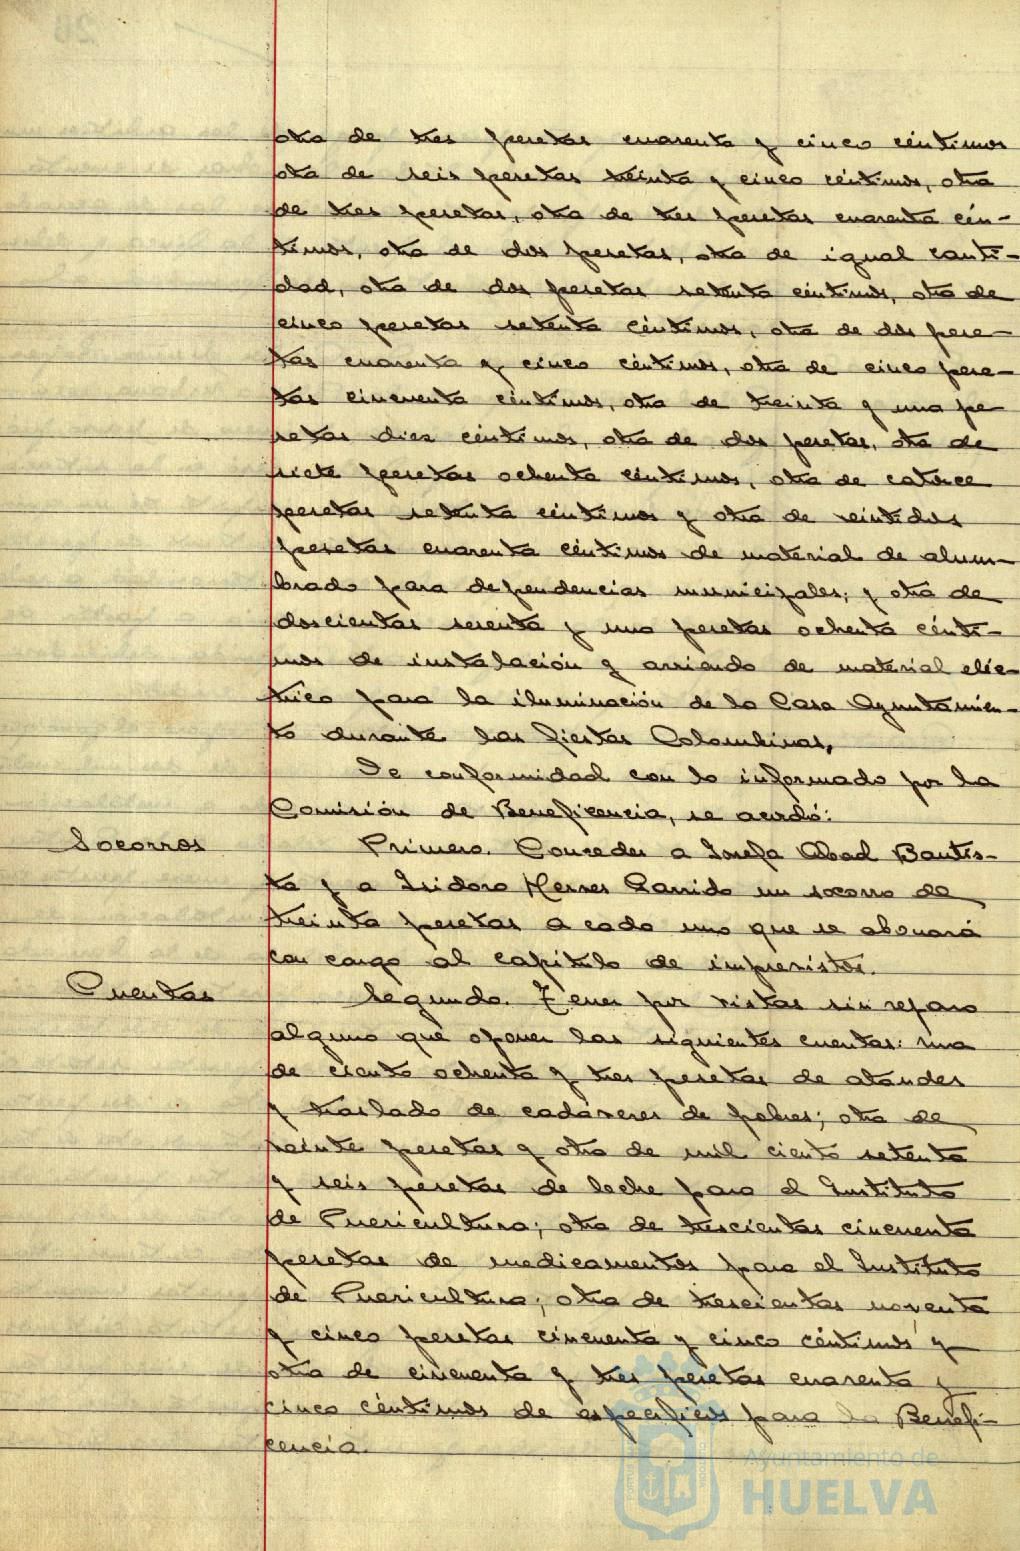 otra de tres pesetas cuarenta y cinco céntimos
otra de seis pesetas treinta y cinco céntimos, otra
de tres pesetas, otra de tres pesetas cuarenta cén-
timos, otra de dos pesetas, otra de igual canti-
dad, otra de dos pesetas setenta céntimos, otra de
cinco pesetas setenta céntimos, otra de dos pese-
tas cuarenta y cinco céntimos, otra de cinco pese-
tas cincuenta céntimos, otra de treinta y una pe
setas diez céntimos, otra de dos pesetas, otra de
siete pesetas ochenta céntimos, otra de catorce
pesetas setenta céntimos y otra de veintidos
pesetas cuarenta céntimos de material de alum-
brado para dependencias municipales; y otra de
doscientas sesenta y una pesetas ochenta cénti-
mos de instalación y arriendo de material eléc-
trico para la iluminación de la Casa Ayuntamien-
to durante las fiestas Colombinas,
De conformidad con lo informado por la
Comisión de Beneficencia, se acordó:
Socorros
Primero. Conceder a Josefa Abad Bautis-
ta y a Isidoro Garrido un socorro de
treinta pesetas a cada uno que se abonará
con cargo al capítulo de imprevistos.
Cuentas
Segundo. Tener por vistas sin reparo
alguno que oponer las siguientes cuentas: una
de ciento ochenta y tres pesetas de ataudes
y traslado de cadáveres de pobres; otra de
veinte pesetas y otra de mil ciento setenta
y seis pesetas de leche para el Instituto
de Puericultura; otra de trescientas cincuenta
pesetas de medicamentos para el Instituto
de Puericultura; otra de trescientas noventa
y cinco pesetas cincuenta y cinco céntimos y
otra de cincuenta y tres pesetas cuarenta y
cinco céntimos de específicos para la Benefi-
cencia.
Ayuntamiento de
HUELVA